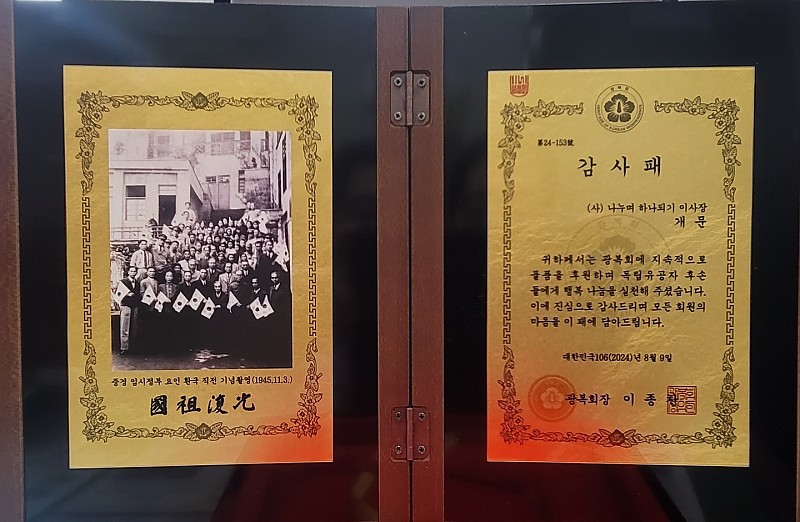 중경 임시정부 요인 환국 직전 기념촬영(1945.11.3.)
國祖復光
第24-153號
감사패
(사) 나누며 하나되기 이사장
개문
귀하께서는 광복회에 지속적으로
물품을 후원하며 독립유공자 후손
들에게 행복 나눔을 실천해 주셨습니다.
이에 진심으로 감사드리며 모든 회원의
마음을 이 패에 담아드립니다.
대한민국106(2024)년 8월 9일
광복회장 이종찬